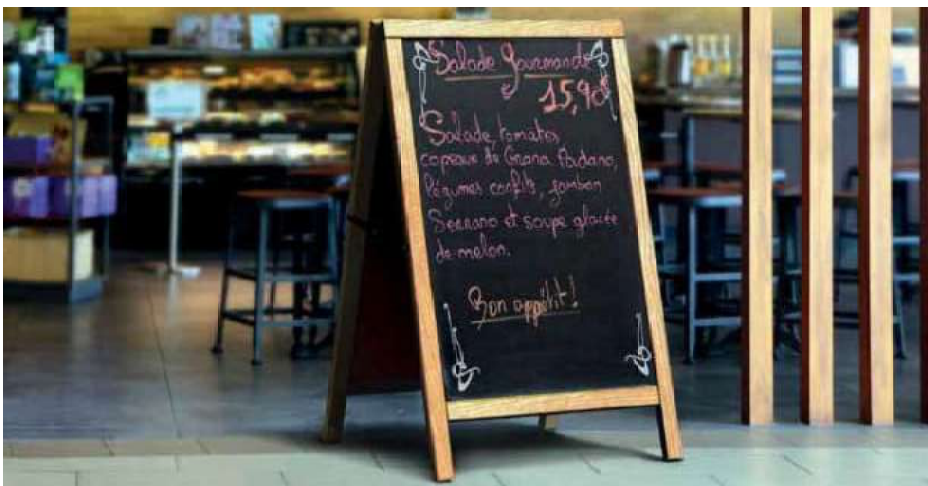 Salade Gourmande
15,90€
Salade, tomates,
copeaux de Grana Padano,
légumes confits, jambon
Serrano et soupe glacée
de melon.
Bon appétit!